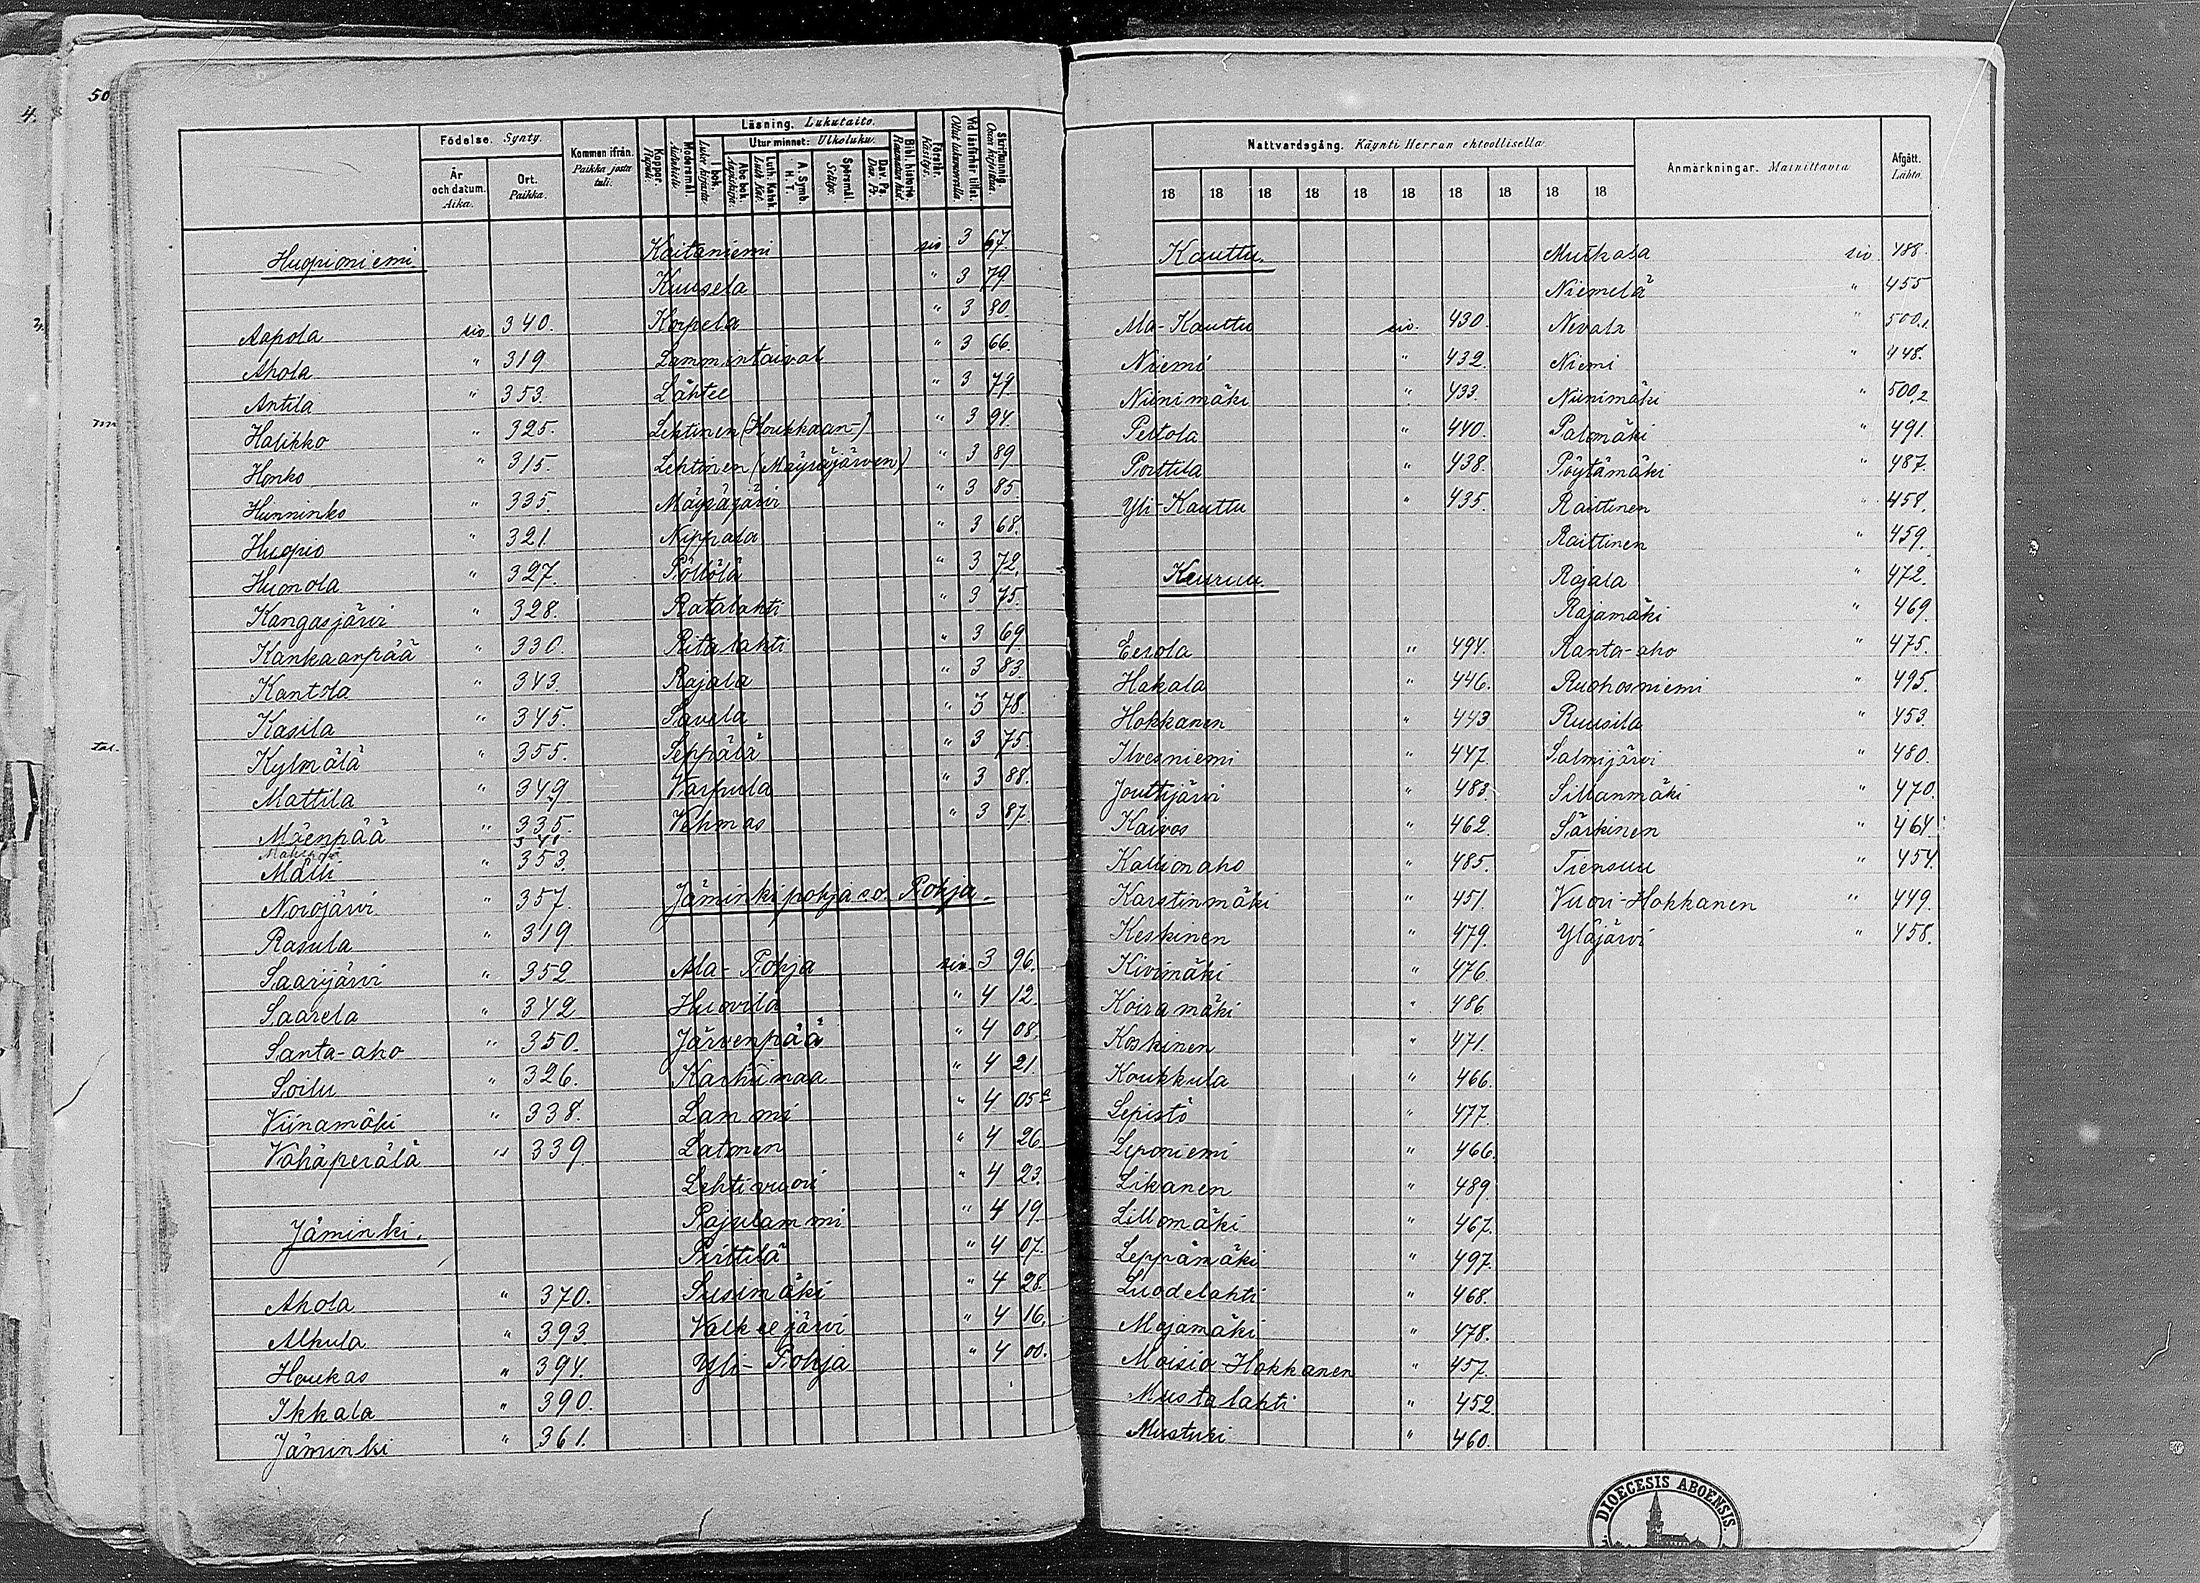 50
4.
Födelse. Synty.
År och datum. Aika.
Ort. Paikka.
Kommen ifrån. Paikka josta tuli.
Koppor. Rupuli.
Modersmål. Äidinkieli.
Läsning. Lukutaito.
I bok. Luku kirjasta.
Utur minnet: Ulkoluku.
Abc bok. Aapiskirja.
Luth. Katek. Luth. Kat.
A. Symb. H. T.
Spörsmål. Selitys.
Dav. Ps. Dav. Ps.
Bibl. historie. Raamatun hist.
Förstår. Käsitys.
Vid läsförhör tillst. Ollut lukuvuorilla.
Skriftkunnig. Osaa kirjoittaa.
Huopioniemi.
Aapola siv. 340.
Ahola " 319
Antila " 353.
Halikko " 325.
Honko " 315.
Hunninko " 335.
Huopio " 321.
Huonola " 327.
Kangasjärvi " 328.
Kankaanpää " 330.
Kantola " 343.
Kasila " 345.
Kylmälä " 355.
Mattila " 349
Mäenpää " 335.
341
Malli " 353.
Norojärvi " 357.
Rasula " 319
Saarijärvi " 352
Saarela " 342
Santa-aho " 350.
Soilu " 326.
Viinamäki " 338.
Vähäperälä " 339.
Jäminki.
Ahola " 370.
Alhula " 393.
Houkas " 394.
Ikkala " 390.
Jäminki " 361.
Kaitaniemi siv 3 67.
Kuusela " 3 79.
Korpela " 3 80.
Lammintaival " 3 66.
Lähtee " 3 79.
Lehtinen (Houkkaan-) " 3 94.
Lehtinen (Mäyräjärven) " 3 89
Mäyräjärvi " 3 85.
Nippala " 3 68.
Pöllölä " 3 72.
Ratalahti " 3 75.
Ritalahti " 3 69.
Rajala " 3 83
Savela " 3 78.
Seppälä " 3 75.
Varpula " 3 88.
Vehmas " 3 87.
Jäminkipohja e.o. Pohja.
Ala-Pohja siv. 3 96.
Huovila " 4 12.
Järvenpää " 4 08.
Karhumaa " 4 21.
Lammi " 4 05
Latonen " 4 26.
Lehtivuori " 4 23.
Rajulammi " 4 19
Pirttilä " 4 07.
Susimäki " 4 28.
Valkeejärvi " 4 16.
Yli-Pohja " 4 00.
Nattvardsgång. Käynti Herran ehtoollisella
18 18 18 18 18 18 18 18 18 18
Anmärkningar. Mainittavia
Afgått. Lähtö.
Kauttu.
Ala-Kauttu siv. 430.
Niemi " 432.
Niinimäki " 433.
Peltola " 440.
Porttila " 438.
Yli-Kauttu " 435.
Keuruu.
Eerola " 494.
Hakala " 446.
Hokkanen " 443
Ilvesniemi " 447.
Jouttijärvi " 483.
Kaivos " 462.
Kallionaho " 485.
Karstinmäki " 451.
Keskinen " 479.
Kivimäki " 476
Koiramäki " 486
Koskinen " 471.
Koukkula " 466.
Lepistö " 477.
Leponiemi " 466.
Likanen " 489.
Lillomäki " 467.
Leppämäki " 497.
Luodelahti " 468.
Majamäki " 478.
Moisio-Hokkanen " 457.
Mustalahti " 452.
Musturi " 460.
Mutkala siv. 488.
Niemelä " 455
Nevala " 500.1.
Niemi " 448.
Niinimäki " 500.2
Palomäki " 491.
Pöytämäki " 487.
Raittinen " 458.
Raittinen " 459.
Rajala " 472.
Rajamäki " 469.
Ranta-aho " 475.
Ruohosniemi " 495.
Ruusila " 453.
Salmijärvi " 480.
Sillanmäki " 470.
Särkinen " 464.
Tiensuu " 454.
Vuori-Hokkanen " 449.
Yläjärvi " 458.
DIOECESIS ABOENSIS.